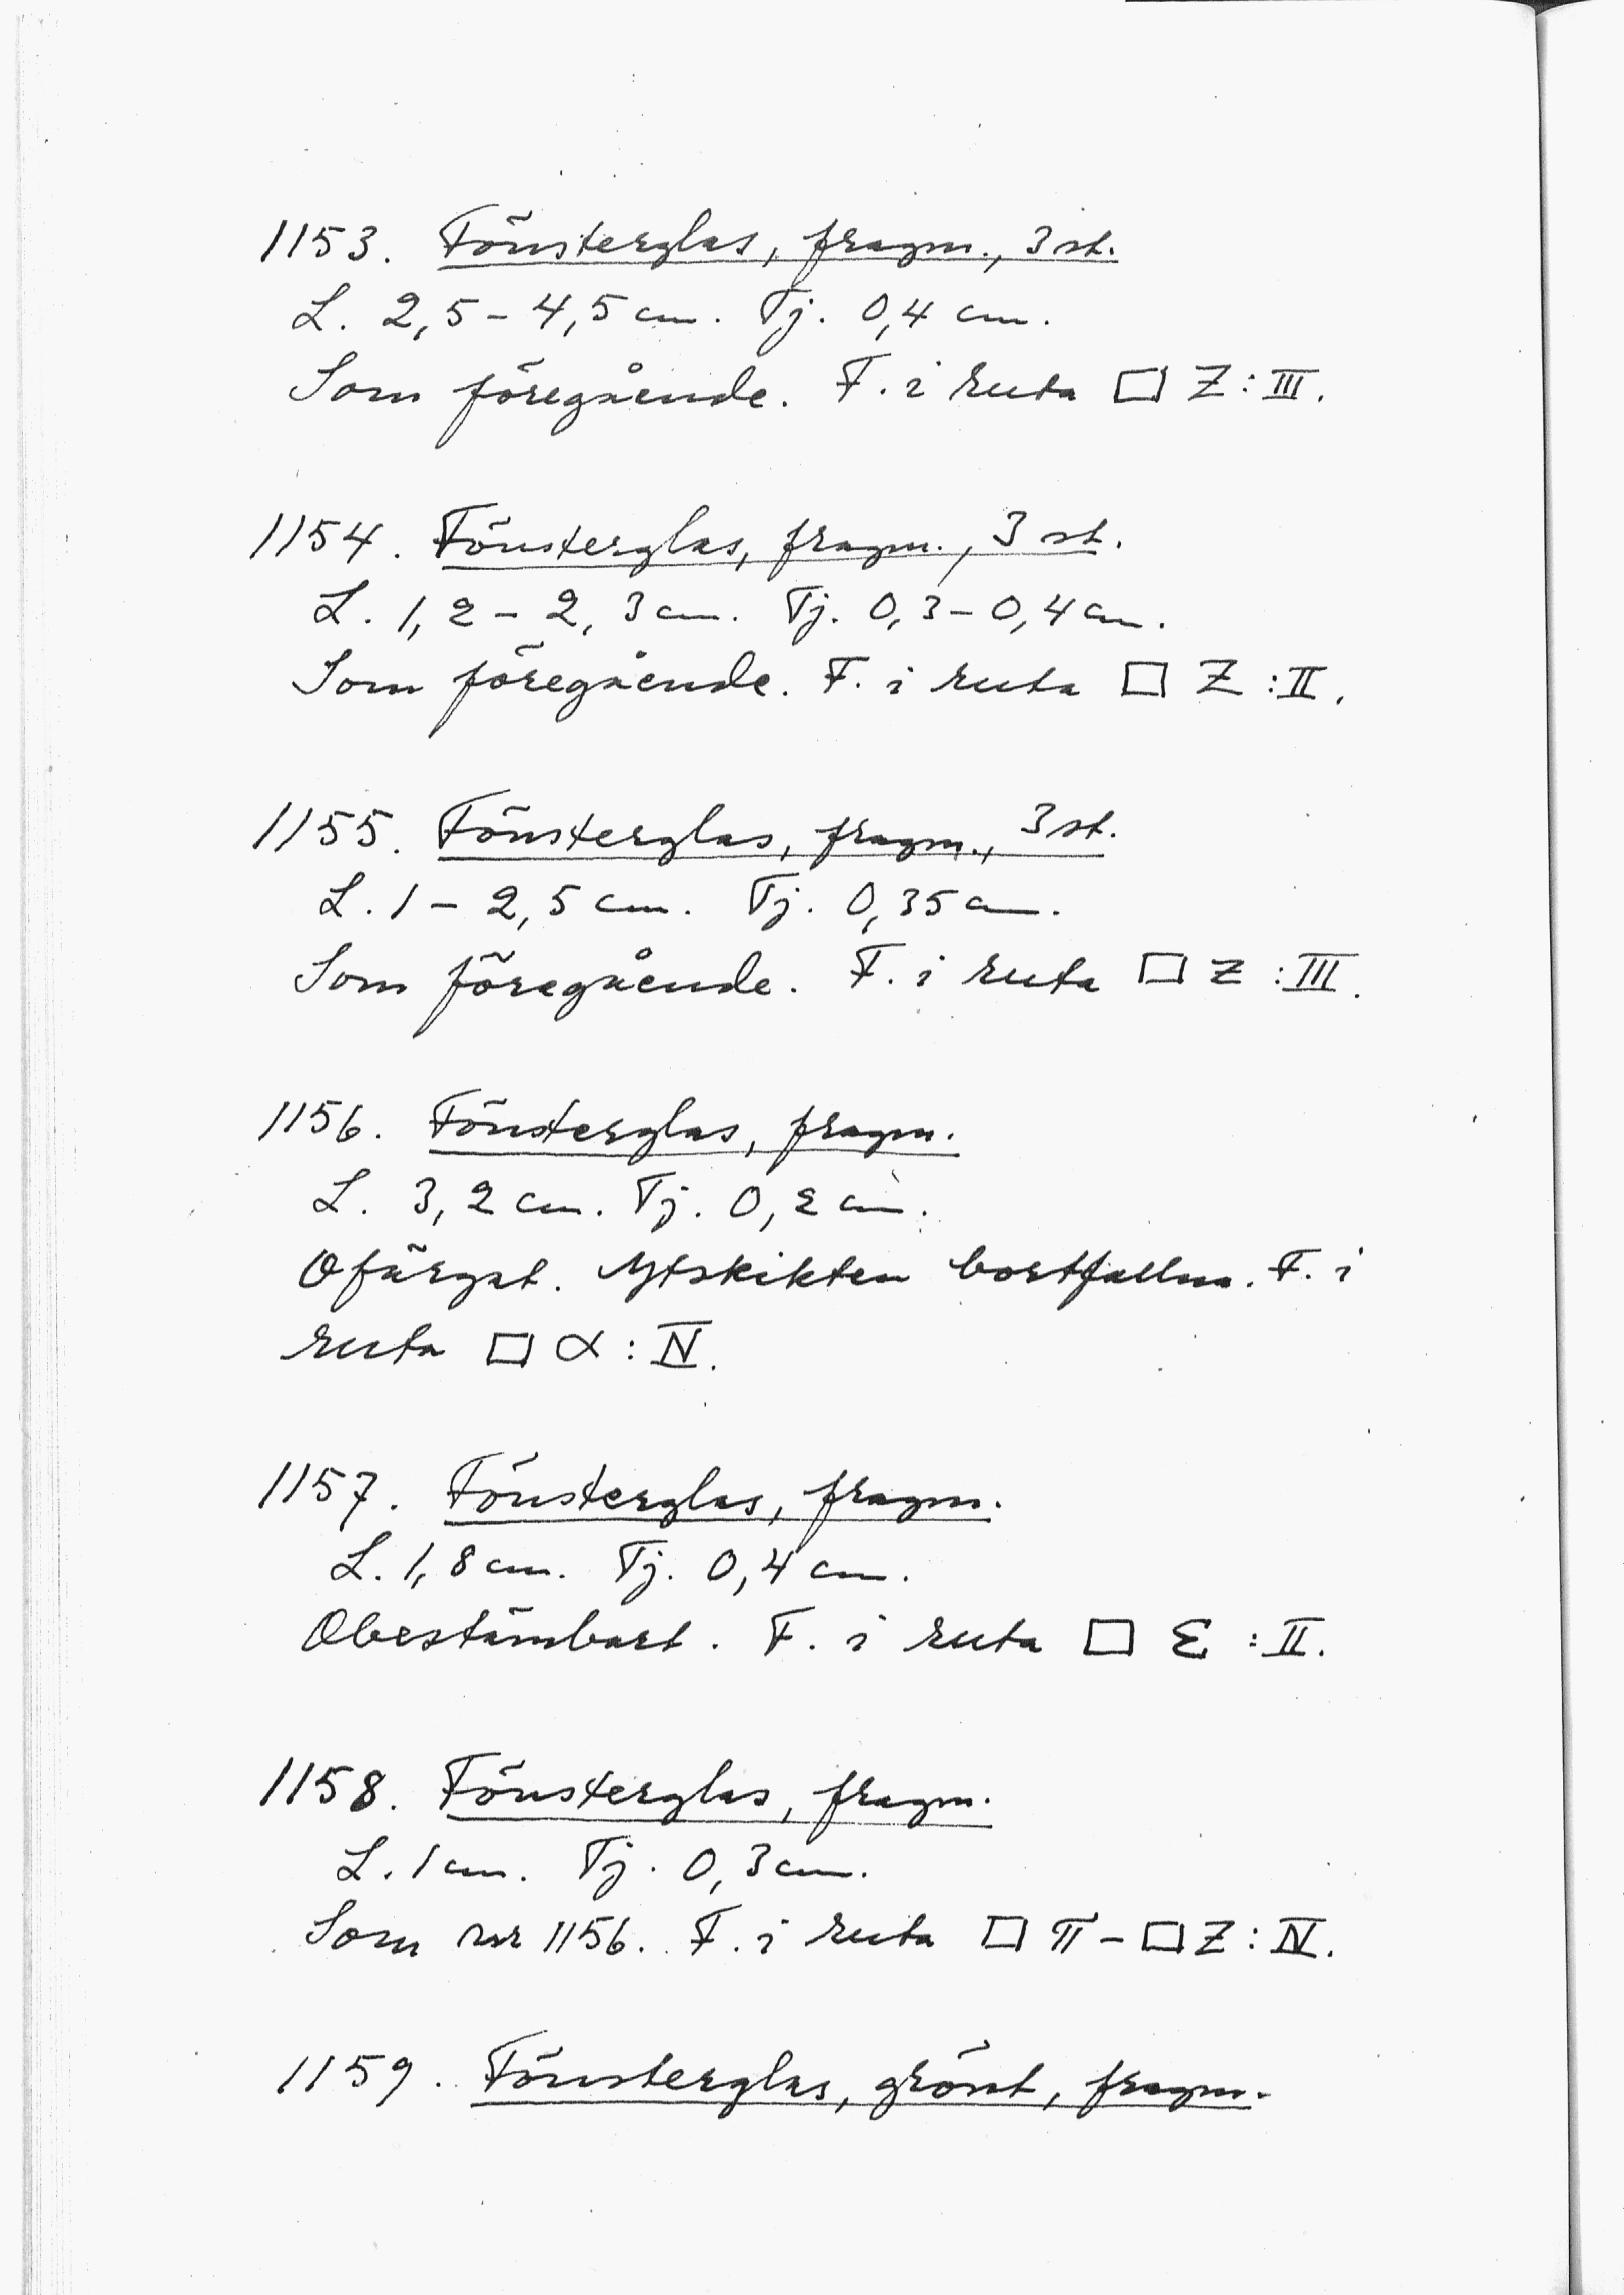 1153. Fönsterglas, fragm., 3 st.
L. 2,5 - 4,5 cm. Tj. 0,4 cm.
Som föregående. F. i ruta □ Z : III.
1154. Fönsterglas, fragm., 3 st.
L. 1,2 - 2,3 cm. Tj. 0,3 - 0,4 cm.
Som föregående. F. i ruta □ Z : II.
1155. Fönsterglas, fragm., 3 st.
L. 1 - 2,5 cm. Tj. 0,35 cm.
Som föregående. F. i ruta □ Z : III.
1156. Fönsterglas, fragm.
L. 3,2 cm. Tj. 0,2 cm.
Ofärgat. Ytskikten bortfallna. F. i
ruta □ α : IV.
1157. Fönsterglas, fragm.
L. 1,8 cm. Tj. 0,4 cm.
Obestämbart. F. i ruta □ Σ : II.
1158. Fönsterglas, fragm.
L. 1 cm. Tj. 0,3 cm.
Som nr 1156. F. i ruta □ π - □ Z : IV.
1159. Fönsterglas, grönt, fragm.